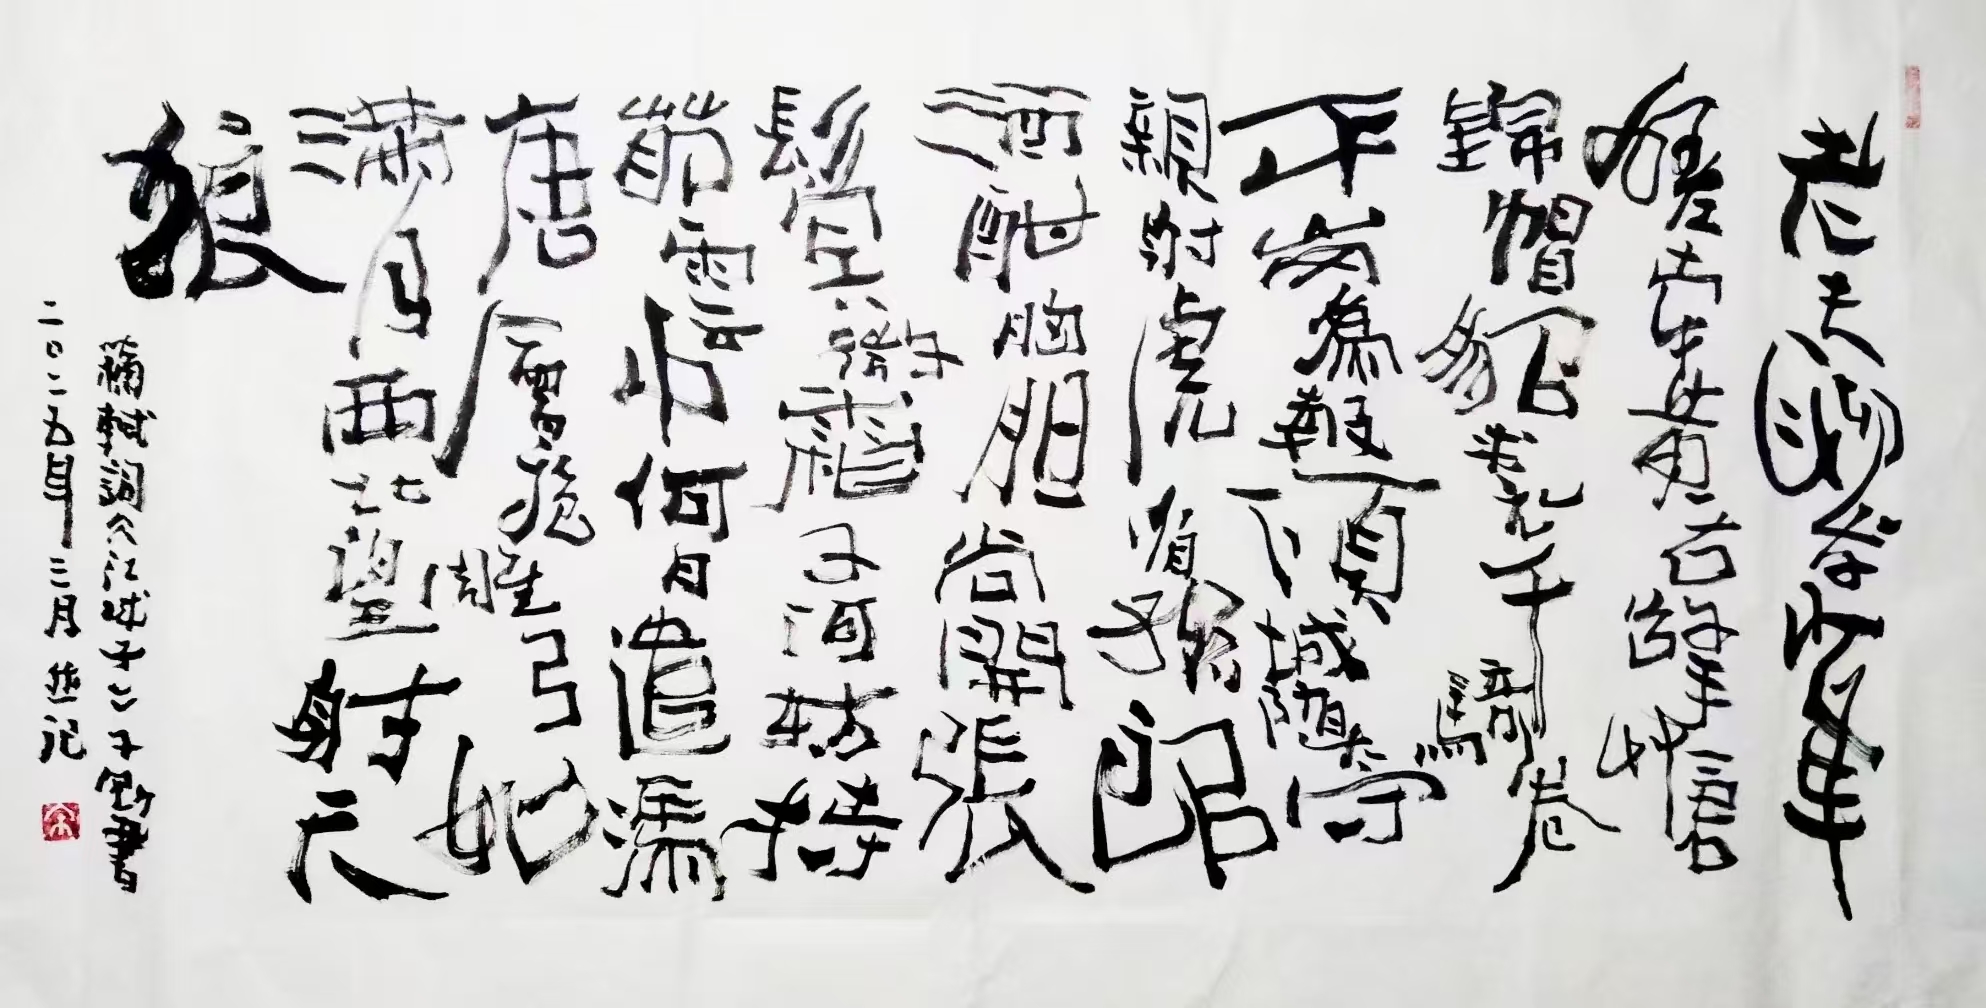 老夫聊發少年
狂左牽黃右擎
錦帽貂裘千騎卷
平岗為報傾城隨太守
親射虎看孫郎
酒酣胸胆尚開張
鬢微霜又河妨持
節雲中何日遣馮
唐會挽雕弓如
滿月西北望射天
狼
蘇軾詞《江城子》子書
二〇二五年三月并记